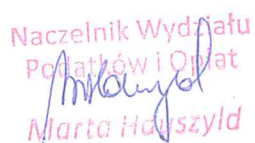 Naczelnik Wydziału
Podatków i Opłat
Marta Hauszyld